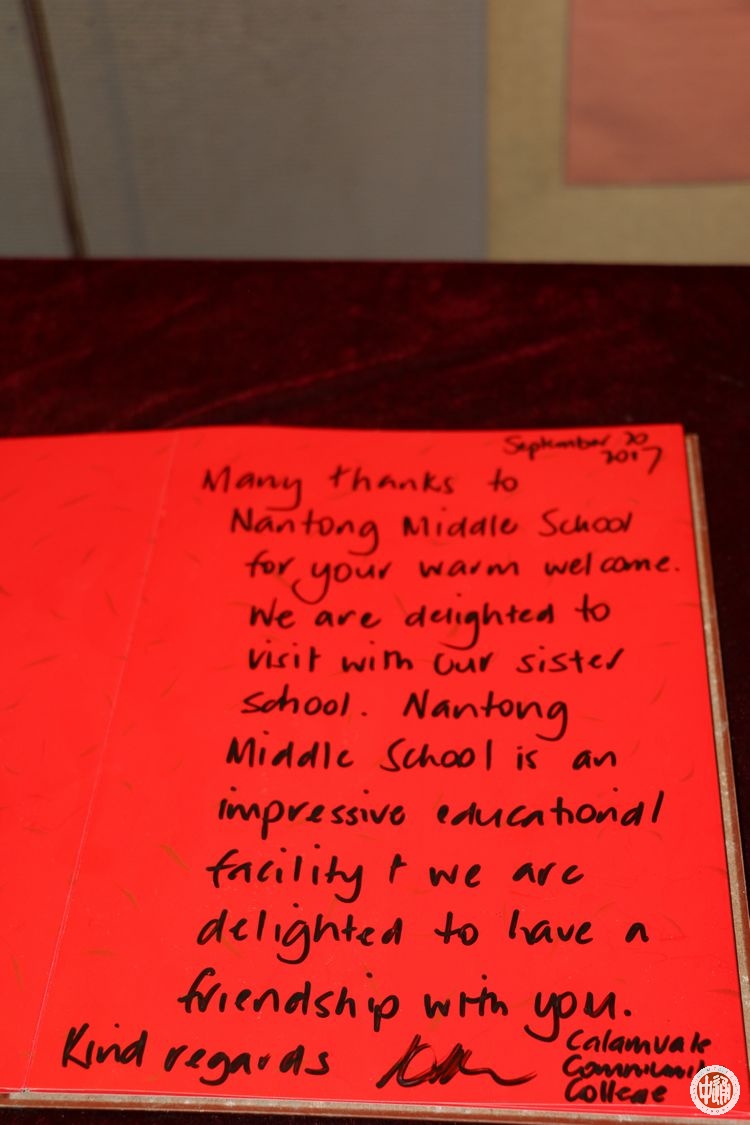 September 20
2017
Many thanks to
Nantong Middle School
for your warm welcome.
We are delighted to
visit with our sister
school. Nantong
Middle School is an
impressive educational
facility + we are
delighted to have a
friendship with you.
Kind regards
Calamvale
Community
College
中通